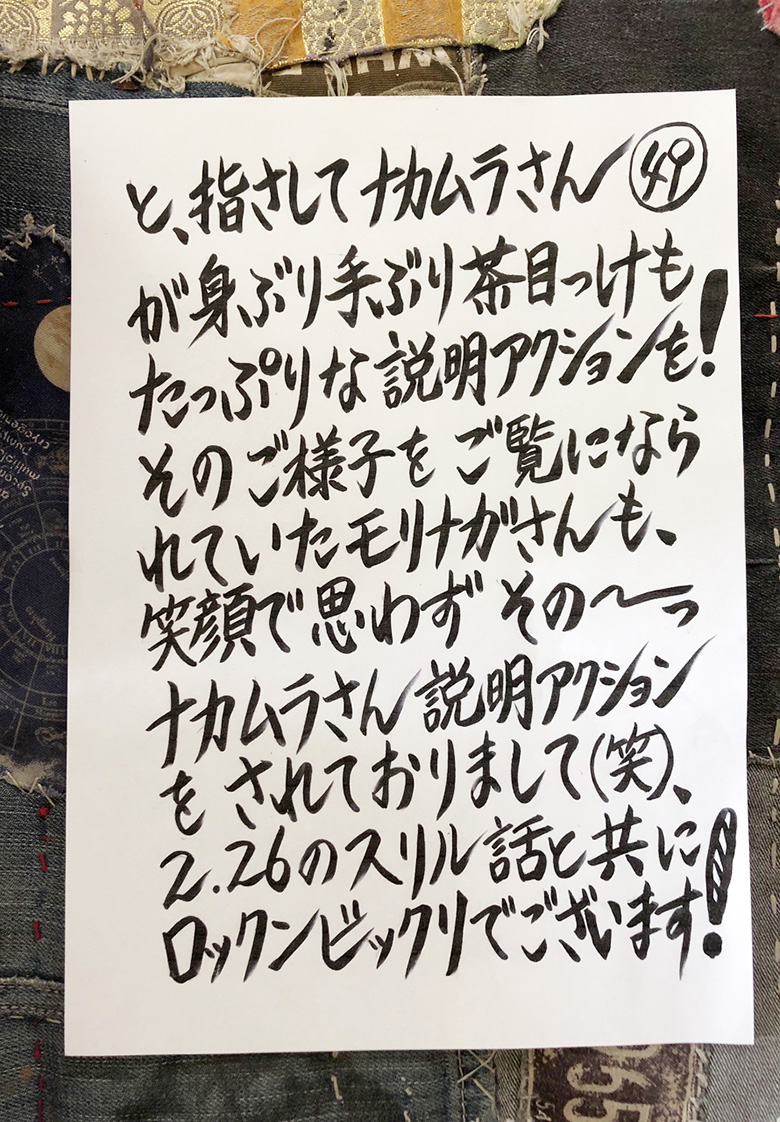 と、指さしてナカムラさん ㊾
が身ぶり手ぶり茶目っけも
たっぷりな説明アクションを!
そのご様子をご覧になら
れていたモリナガさんも、
笑顔で思わずその〜っ
ナカムラさん説明アクション
をされておりまして(笑)、
2.26のスリル話と共に
ロックンビックリでございます!